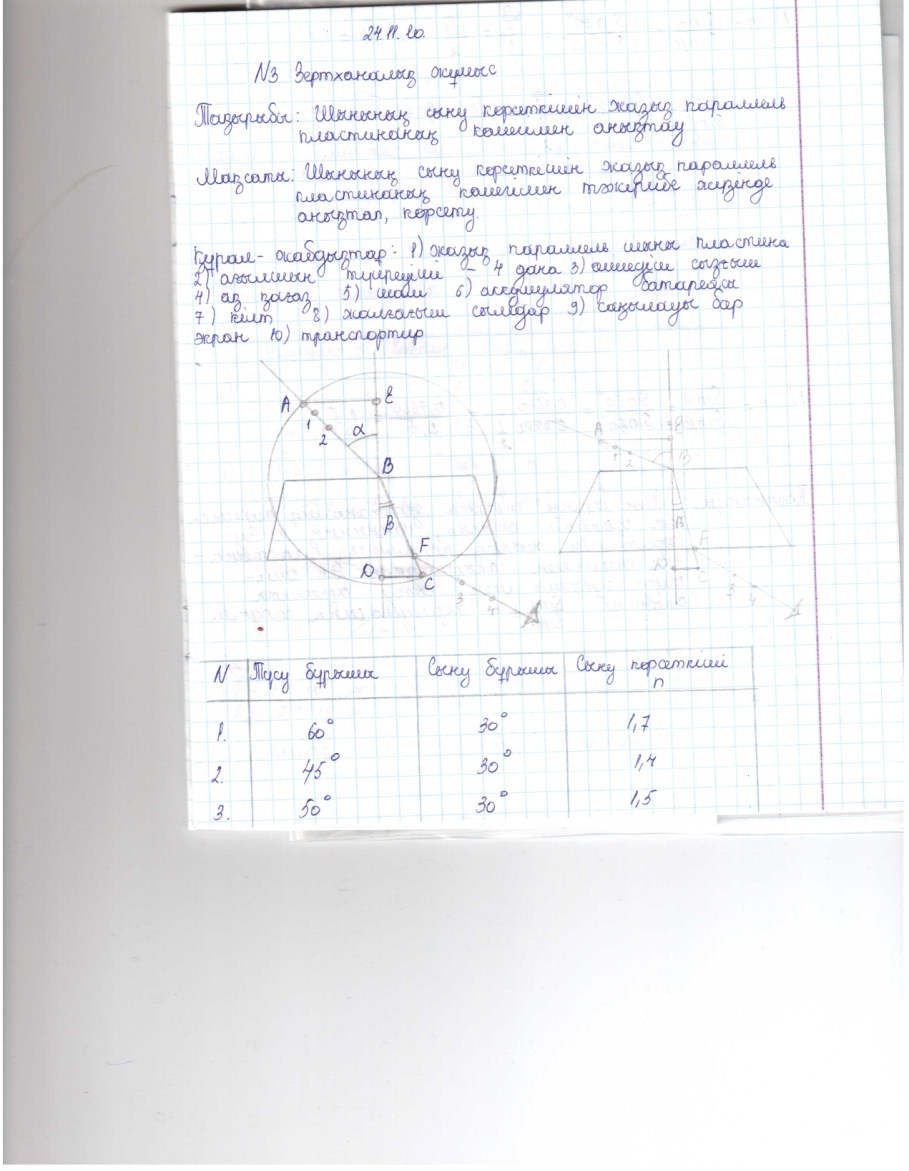 24.11.20.
N3 Зертханалық жұмыс
Тақырыбы: Шынының сыну көрсеткішін жазық параллель
пластинаның көмегімен анықтау
Мақсаты: Шынының сыну көрсеткішін жазық параллель
пластинаның көмегімен тәжірибе жүзінде
анықтап, көрсету.
Құрал-жабдықтар: 1) жазық параллель шыны пластина
2) ағылшын түйреуіші - 4 дана 3) өлшеуіш сызғыш
4) ақ қағаз 5) шам 6) аккумулятор батареясы
7) кілт 8) жалғағыш сымдар 9) саңылауы бар
экран 10) транспортир
A E
1
2 α
B
β
F
D C
3
4
A E
1 2
B
β
F
D C
3
4
N Түсу бұрышы Сыну бұрышы Сыну көрсеткіші
n
1. 60° 30° 1,7
2. 45° 30° 1,4
3. 50° 30° 1,5